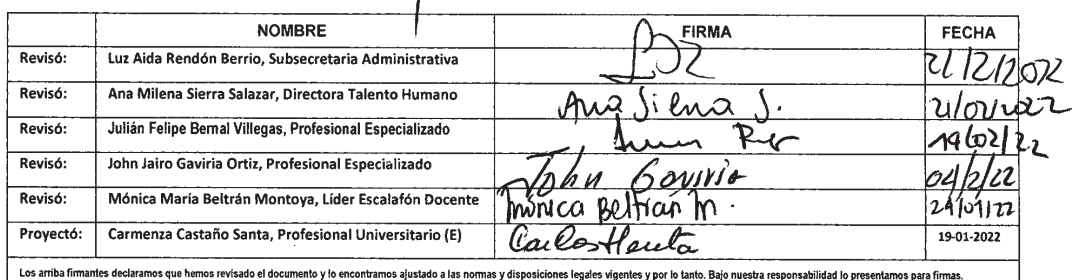 NOMBRE FIRMA FECHA
Revisó: Luz Aida Rendón Berrio, Subsecretaria Administrativa
Revisó: Ana Milena Sierra Salazar, Directora Talento Humano Ana Silena S.
Revisó: Julián Felipe Bernal Villegas, Profesional Especializado 14/02/22
Revisó: John Jairo Gaviria Ortiz, Profesional Especializado John Gaviria 04/2/22
Revisó: Mónica María Beltrán Montoya, Líder Escalafón Docente Mónica Beltrán M. 24/01/22
Proyectó: Carmenza Castaño Santa, Profesional Universitario (E) 19-01-2022
Los arriba firmantes declaramos que hemos revisado el documento y lo encontramos ajustado a las normas y disposiciones legales vigentes y por lo tanto. Bajo nuestra responsabilidad lo presentamos para firmas.